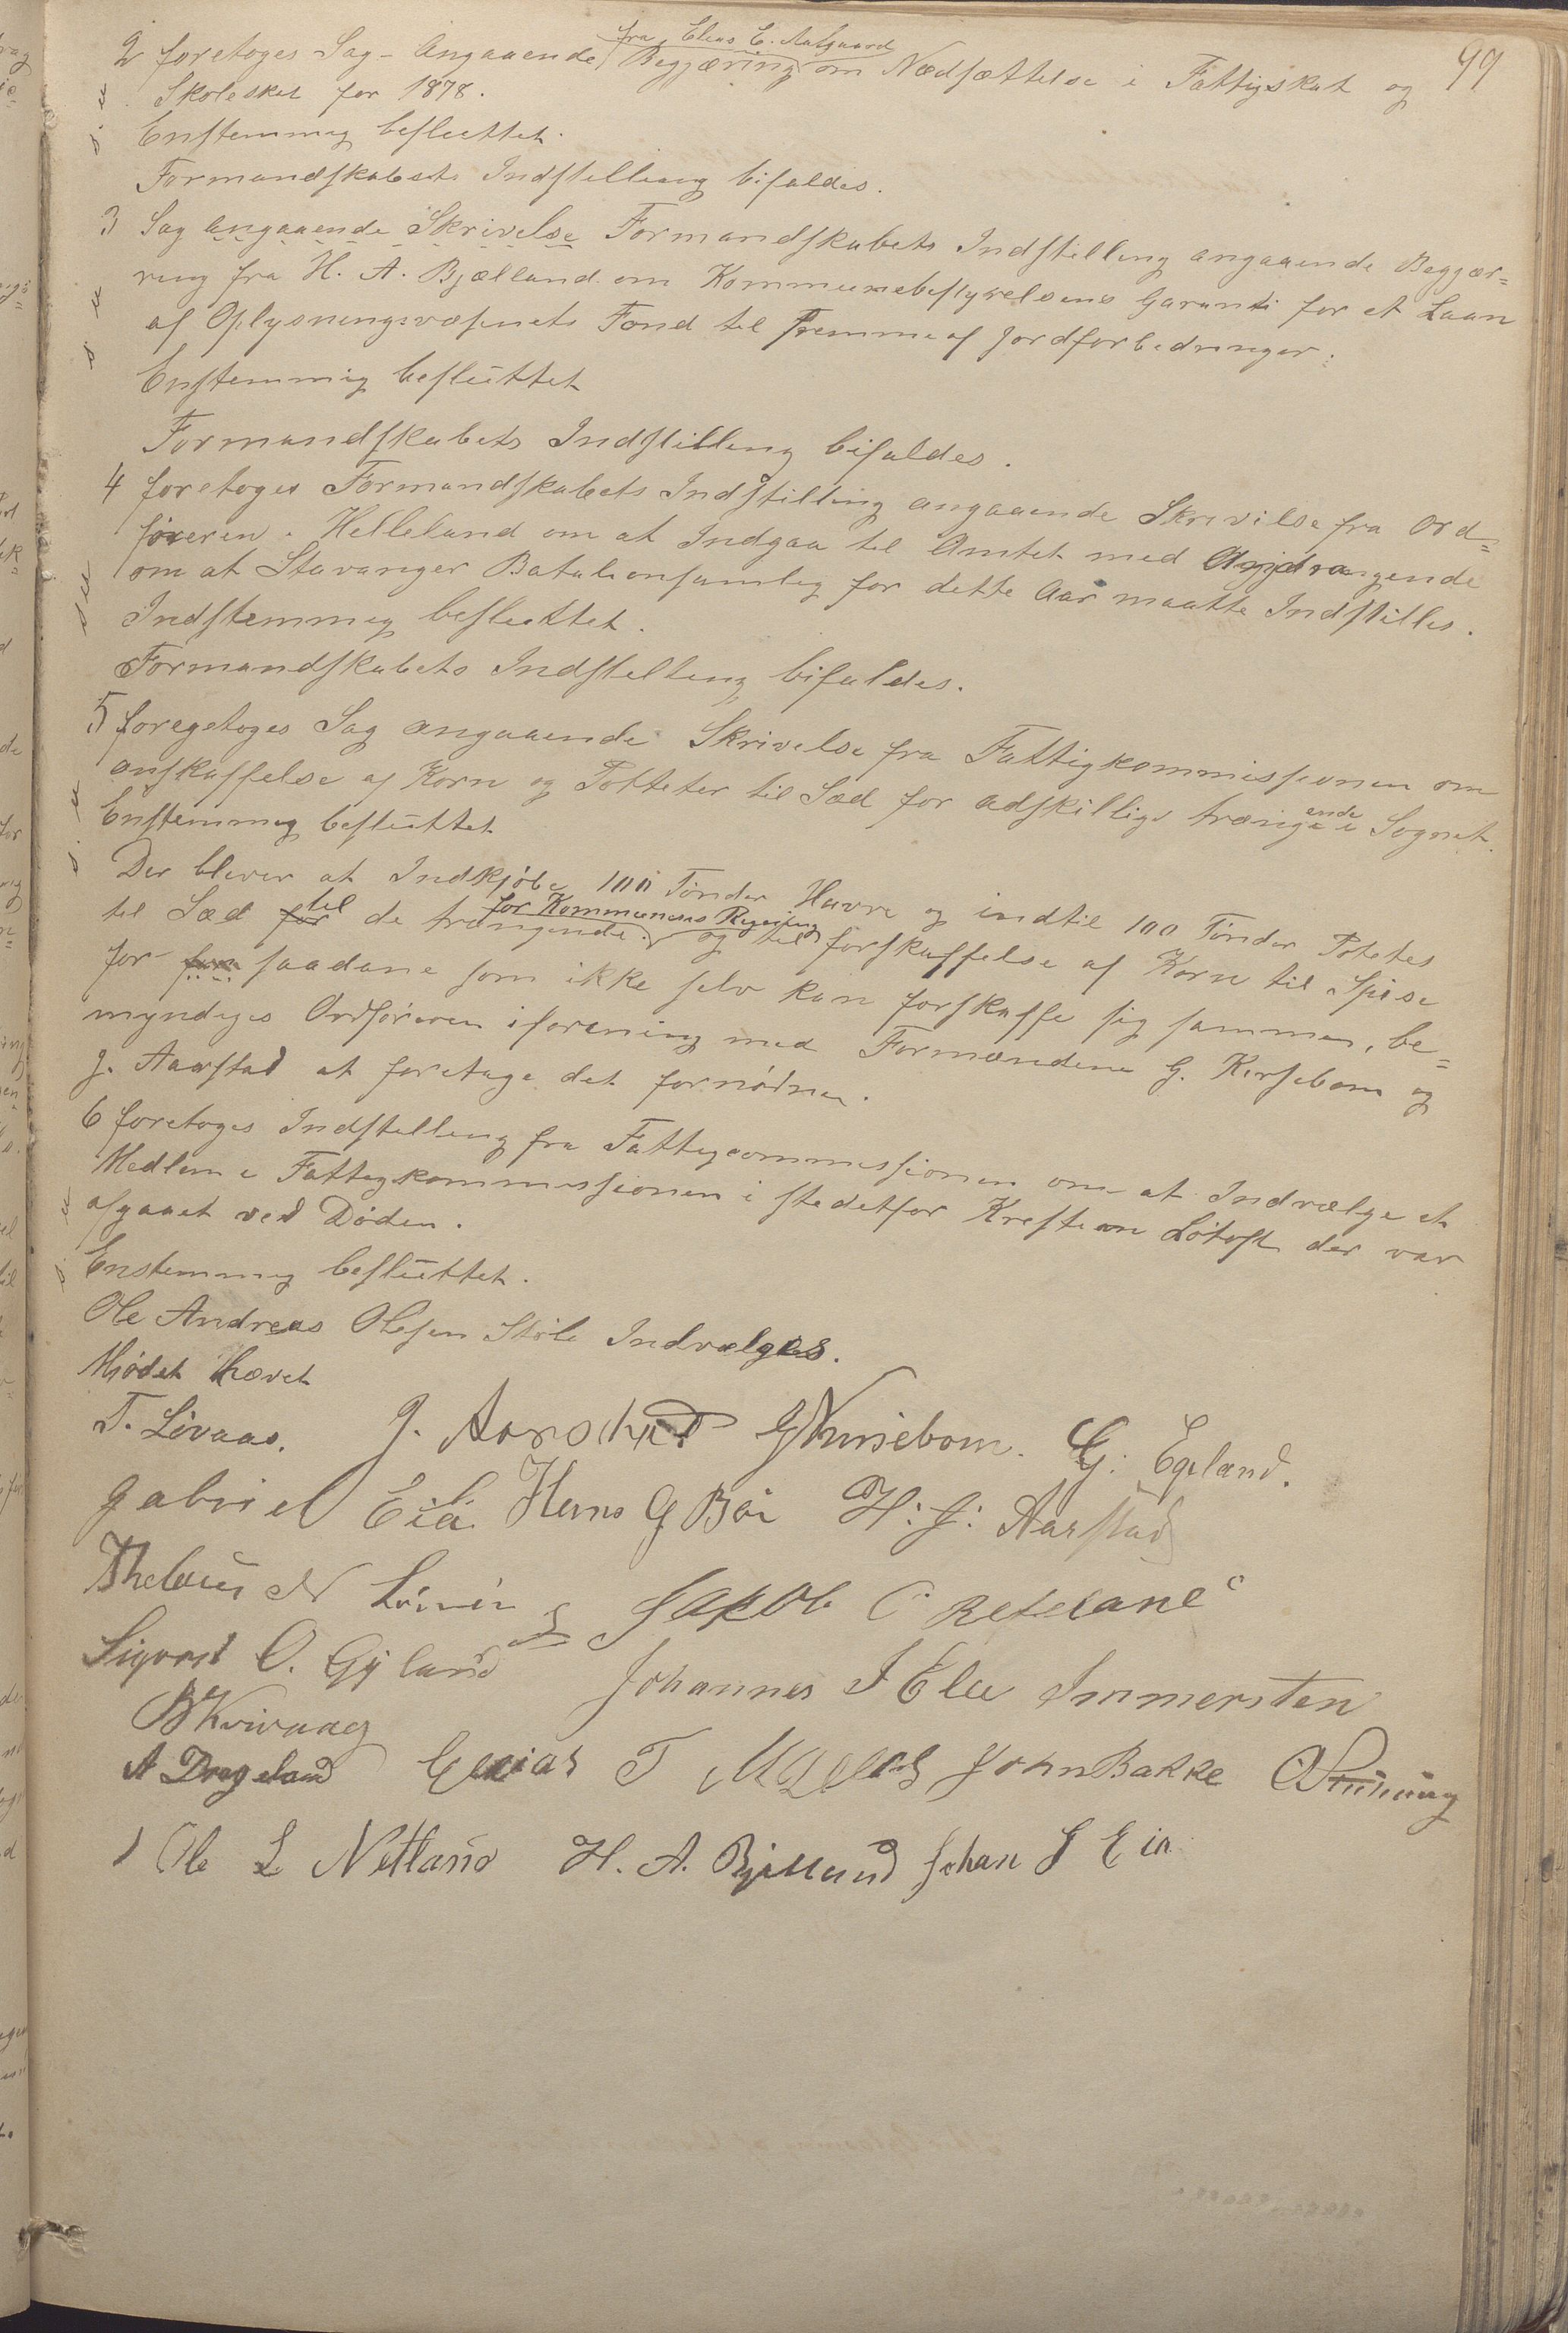 99
2 foretoges Sag - Angaaende fra Elias E. Aalgaard Begjæring om Nedsættelse i Fattigskat og
Skoleskat for 1878.
Enstemmig besluttet.
Formandskabets Indstilling bifaldes.
3 Sag angaaende Skrivelse Formandskabets Indstilling angaaende Begjær=
ring fra H. A. Bjælland om Kommunebestyrelsens Garanti for et Laan
af Oplysningsvæsnets Fond til Fremme af Jordforbedringer.
Enstemmig besluttet
Formandskabets Indstilling bifaldes.
4 foretoges Formandskabets Indstilling angaaende Skrivelse fra Ord=
føreren i Helleland om at Indgaa til Amtet med
om at Stavanger Batalionsamlig for dette Aar maatte Indstilles.
Indstemmig besluttet.
Formandskabets Indstilling bifaldes.
5 foregetoges Sag angaaende Skrivelse fra Fattigkommissionen om
anskaffelse af Korn og Potteter til Sæd for adskillige trængende i Sognet.
Enstemmig besluttet
Der bliver at Indkjøbe 100 Tønder Havre og indtil 100 Tønder Potetes
til Sæd for til de trængende for Kommunens Regning og til forskaffelse af Korn til Spise
for for saadane som ikke selv kan forskaffe sig sammen, be=
myndiges Ordføreren iforening med Formændene G. Kersebom og
J. Aarstad at foretage det fornødne.
6 foretoges Indstilling fra Fattigcommissionen om at Indvælge et
Medlem i Fattigkommissionen i stedetfor Kristian Løtoft der var
afgaaet ved Døden.
Enstemmig besluttet.
Ole Andreas Olesen Støle Indvælges.
Mødet hævet
T. Løvaas. J. Aarstad G Kersebom. G. Egeland.
Gabriel Eia Hans G Bøe H. J. Aarstad
N Jakob
Sigvart O. Gyland Johannes Immersten
B Kvivaag
A Drageland Elias T John Bakke
Ole L Netland H. A. Bjelland Johan J Eia